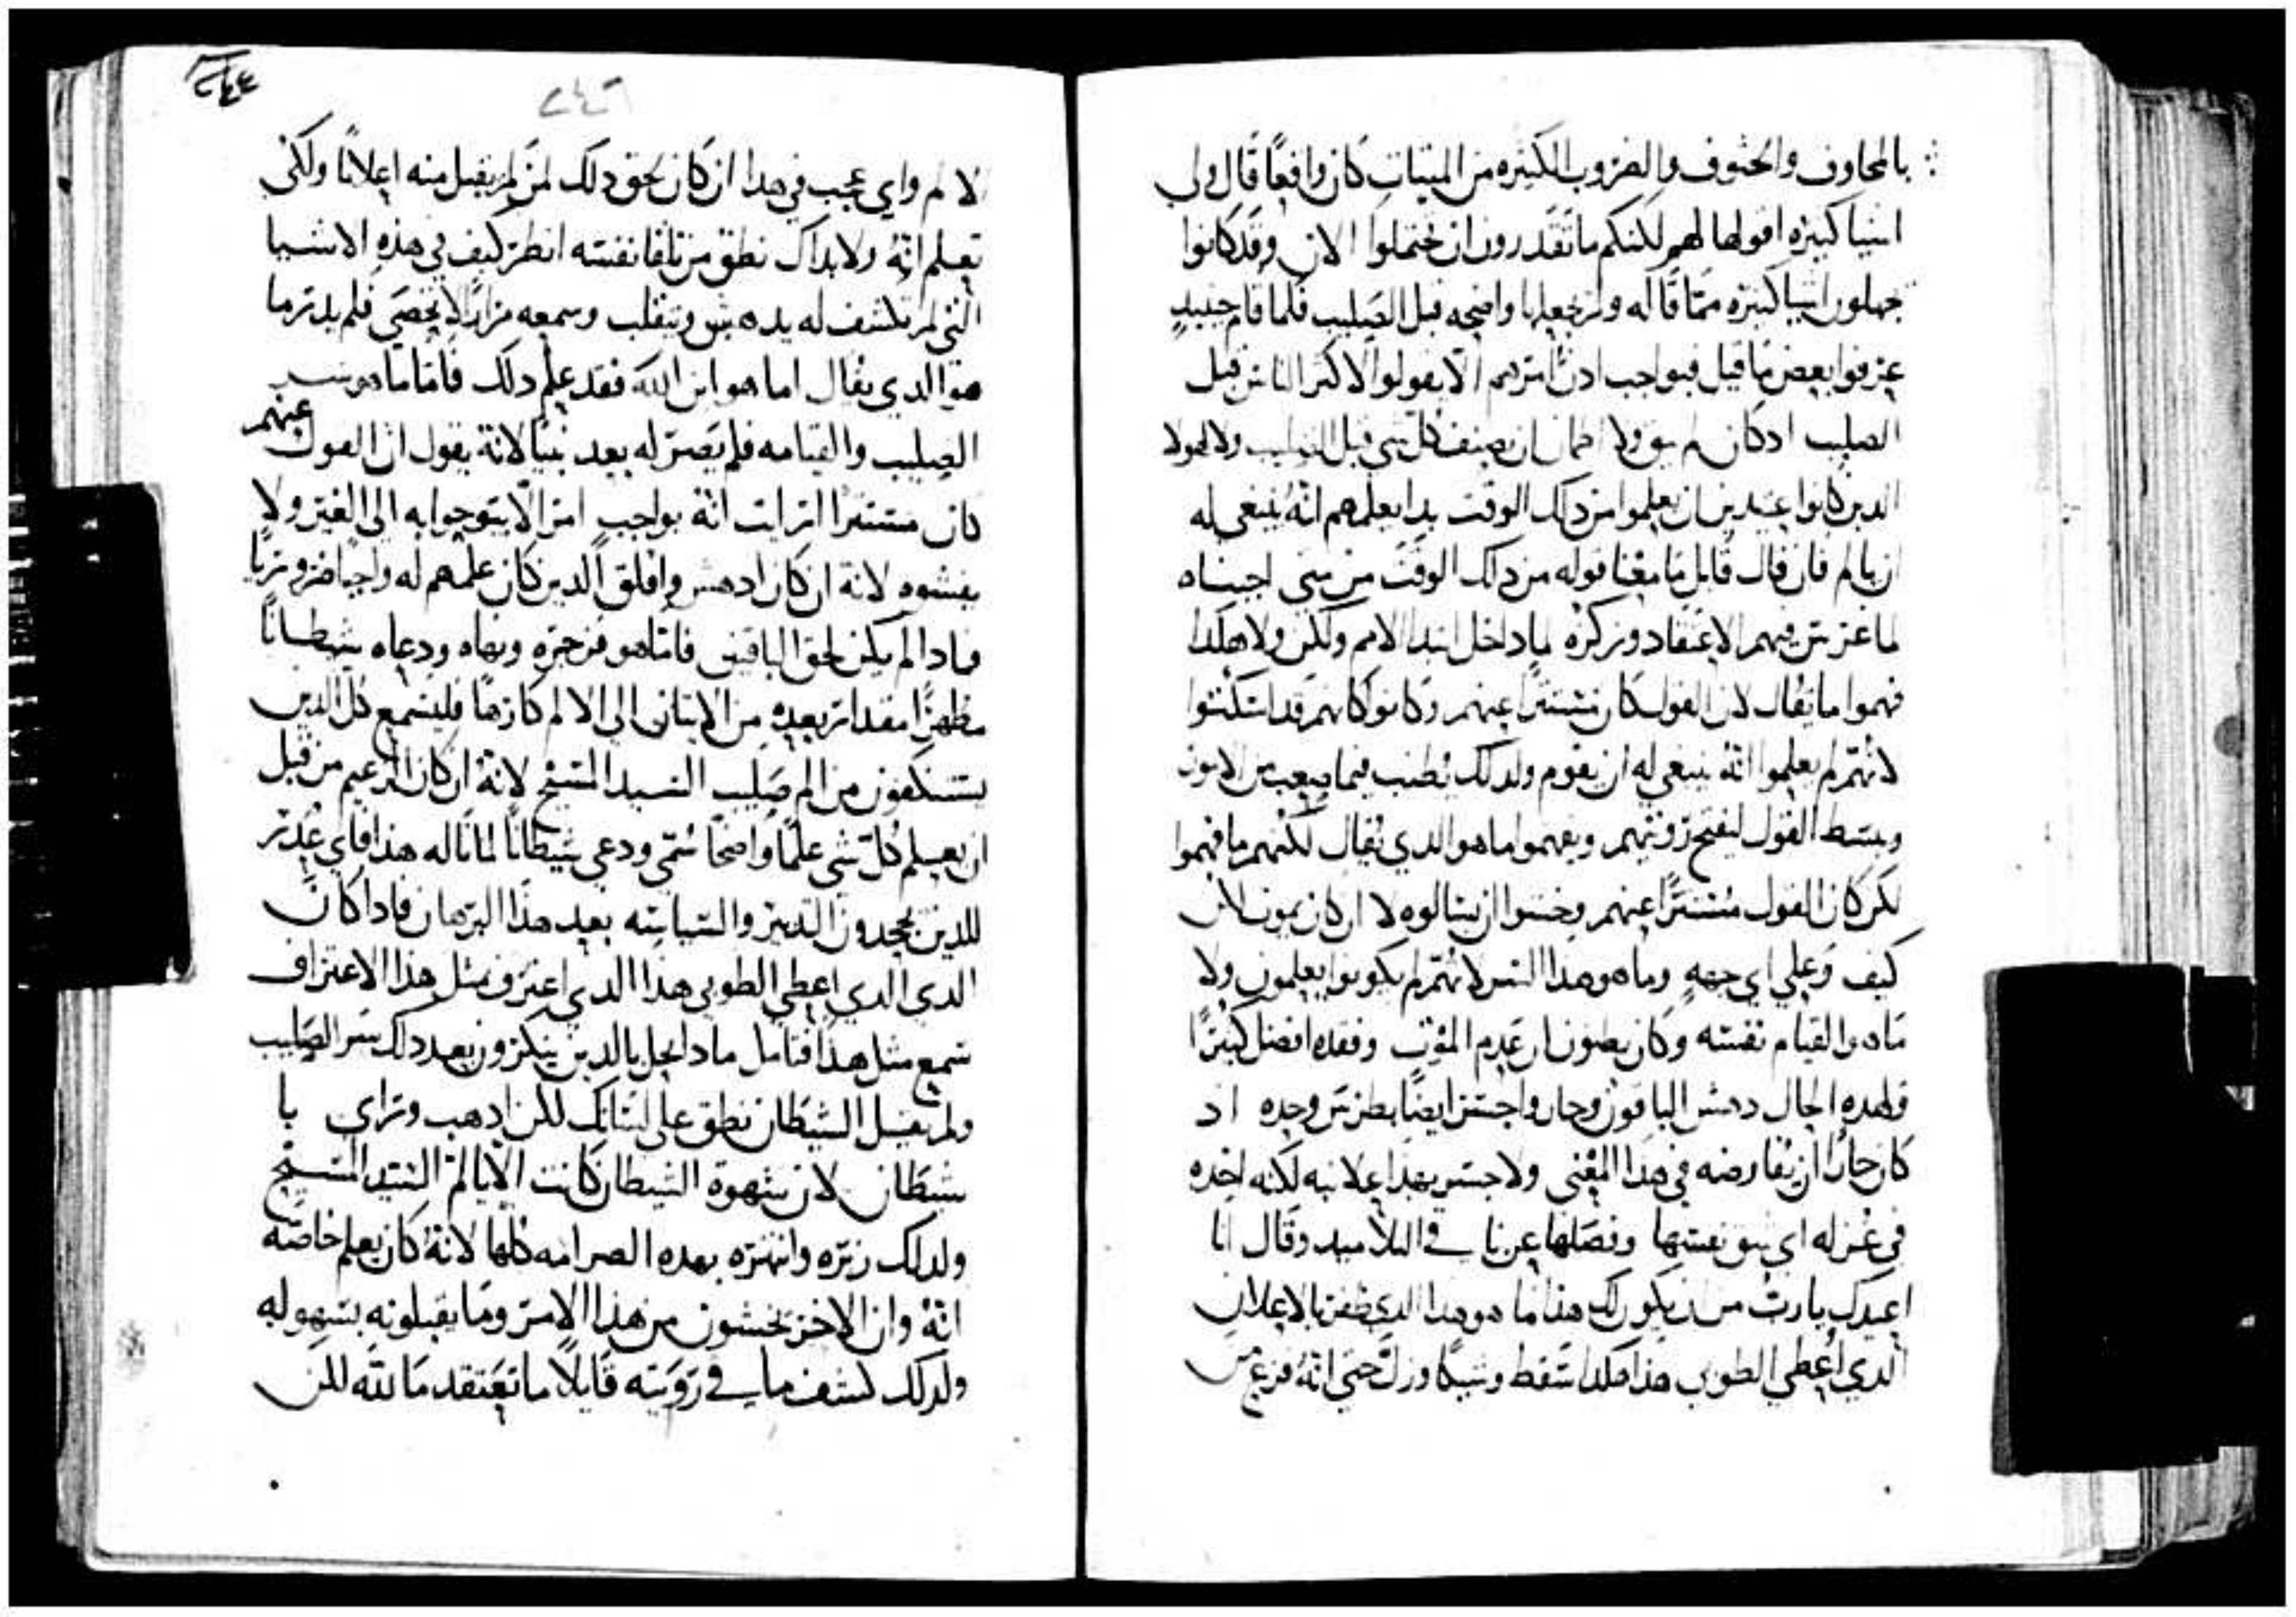 بالمخاوف والحتوف والضروب الكثيره من الميتات كان واقعًا قال ولي
اشيا كثيره اقولها لهم لكنكم ما تقدرون ان تحتملوا الان وقد كانوا
جهلون اشيا كثيره ممّا قاله ولم يجعلها واضحه قبل الصليب فلما قام حينيدٍ
عرفوا بعض ما قيل فبواجب ادن امرهم الا يقولوا لاكثر الناس قبل
الصليب ادكان لم يثق ولا ان يصنف كل شي قبل الصليب ولا لهولا
الدين كانوا عتيدين ان يعلموا من دلك الوقت بدا يعلمهم انه ينبغي له
ان يالم فان قال قايل ما معنا قوله من دلك الوقت من متى اجبناه
لما غرس فيهم الاعتقاد وتركزه لما داخل ابتدا الامم ولكن ولا هكدا
فهموا ما يقال لان القول كان مستترًا عنهم وكانوا كانهم قد استكنوا
لانهم لم يعلموا انه ينبغي له ان يقوم ولدلك يطنب فيما يصعب من الامور
ويبسط القول ليفتح رويتهم ويفهموا ما هو الدي يقال لكنهم ما فهموا
لكن كان القول مستترًا عنهم وخشوا ان يسالوه لا ان كان يموت لكن
كيف وعلي اي جهه وما هو هدا السر لانهم لم يكونوا يعلمون ولا
ما هو القيام نفسه وكان يظنون ان عدم الموت وفقده افضل كثيرًا
ولهده الحال دهش الباقون وحار واجسر ايضًا بطرس وحده اد
كان حارًا ان يفاوضه في هدا المعنى ولا جسر بهدا علانيه لكنه اخده
في عزله اي شق نفسها وفصلها عن باقي التلاميد وقال انا
اعيدك يارب من ان يكون لك هدا ما هو هدا الدي ظفر بالاعلان
الدي اعطي الطوبى هدا هكدا سقط وشيكًا وزل حتى انه فزع من
٢٤٤
٢٤٦
الالم واي عجب في هدا ان كان لحق دلك لمن لم يقبل منه اعلانًا ولكى
تعلم انه ولا بداك نطق من تلقا نفسه انظر كيف في هذه الاشيا
التي لم تكشف له يدهش وينقلب وسمعه مرارًا لا تحصى فلم يدر ما
هو الدي يقال اما هو ابن الله فقد علم دلك فاما ما هو سر
الصليب والقيامه فلم يصر له بعد بينًا لانه يقول ان القول عنهم
كان مستترًا ارايت انه بواجب امر الا يتوجوا به الى الغير ولا
يفشوه لانه ان كان ادهش واقلق الدين كان علمهم له واجبا ضروريًا
فمادا لم يكن لحق الباقين فاما هو فزجره ونهاه ودعاه شيطانًا
مظهرًا مقدار بعده من الاتيان الى الالم كارهًا فليسمع كل الدين
يستنكفون من الم صليب السيد المسيح لانه ان كان الزعيم من قبل
ان يعلم كل شي علمًا واضحًا سمى ودعي شيطانًا لما ناله هذا فاي عدر
للدين يجحدون التدبير والسياسه بعد هذا البرهان فادا كان
الدي الدي اعطى الطوبى هذا الدي اعترف بمثل هذا الاعتراف
سمع مثل هذا فتامل مادا يحل بالدين ينكرون بعد دلك سر الصليب
ولم يقل الشيطان نطق على لسانك لكن ادهب وراي يا
شيطان لان شهوة الشيطان كانت الا يالم السيد المسيح
ولدلك زبره وانتهره بهده الصرامه كلها لانه كان يعلم خاصه
انه وان الاخر يخشون من هذا الامر وما يقبلونه بسهوله
ولدلك كشف ما في رويته قايلًا ما تعتقد ما لله لكن